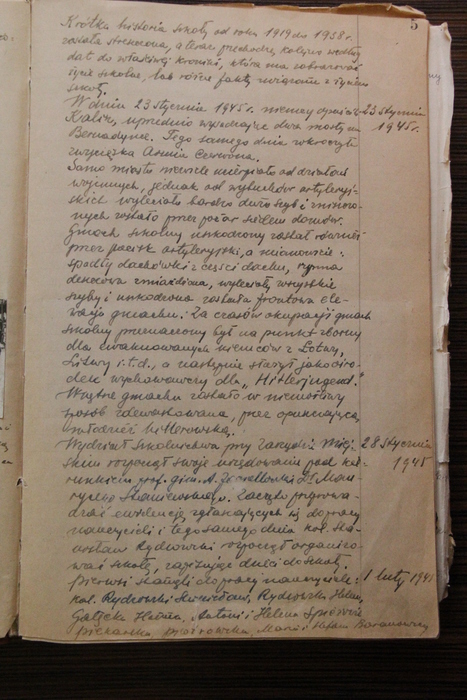 5
Krótka historia szkoły od roku 1919 do 1938 r.
została streszczona, a teraz przechodzę kolejno według
dat do właściwej kroniki, która ma zobrazować
życie szkolne, lub różne fakty związane z życiem
szkoły.
W dniu 23 stycznia 1945 r. niemcy opuścili 23 stycznia
Kalisz, uprzednio wysadzając dwa mosty na 1945 r.
Bernadynce. Tego samego dnia wkroczyła
zwycięzka Armia Czerwona.
Samo miasto niewiele ucierpiało od działań
wojennych, jednak od wybuchów artyleryj-
skich wyleciało bardzo dużo szyb i zniszczo-
nych zostało przez pożar siedem domów.
Gmach szkolny uszkodzony został również
przez pocisk artyleryjski, a mianowicie:
spadły dachówki z części dachu, rynna
deszczowa zmiażdżona, wyleciały wszystkie
szyby i uszkodzona została frontowa ele-
wacja gmachu. Za czasów okupacji gmach
szkolny przeznaczony był na punkt zborny
dla ewakuowanych niemców z Łotwy,
Litwy i t.d., a następnie służył jako ośro-
dek wychowawczy dla „Hitlerjugend."
Wnętrze gmachu zostało w niemożliwy
sposób zdewastowane, przez opuszczającą
młodzież hitlerowską.
Wydział szkolnictwa przy Zarządzie Miej- 28 stycznia
skim rozpoczął swoje urzędowanie pod kie- 1945
runkiem prof. gim. A. i
rycego Staniewskiego. Zaczęto przeprowa-
dzać ewidencję zgłaszających się do pracy
nauczycieli i tego samego dnia kol. Sta-
nisław Rydlewski rozpoczął organizo-
wać szkołę, zapisując dzieci do szkoły.
Pierwsi stanęli do pracy nauczyciele: 1 luty 1945
kol. Rydlewski Stanisław, Rydlewska Helena,
Gałęcka Halina, Antoni i Helena
Piekarska, Maria i Stefan